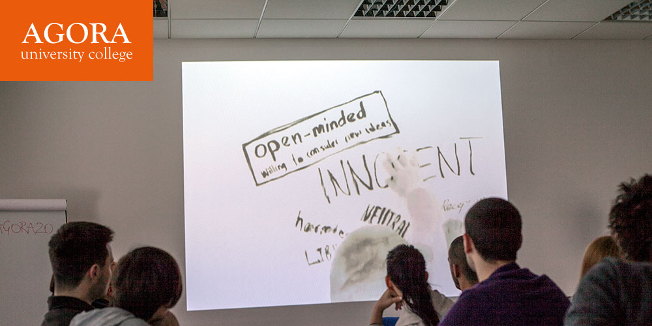 AGORA
university college
open-minded
willing to consider new ideas
INNOCENT
NEUTRAL